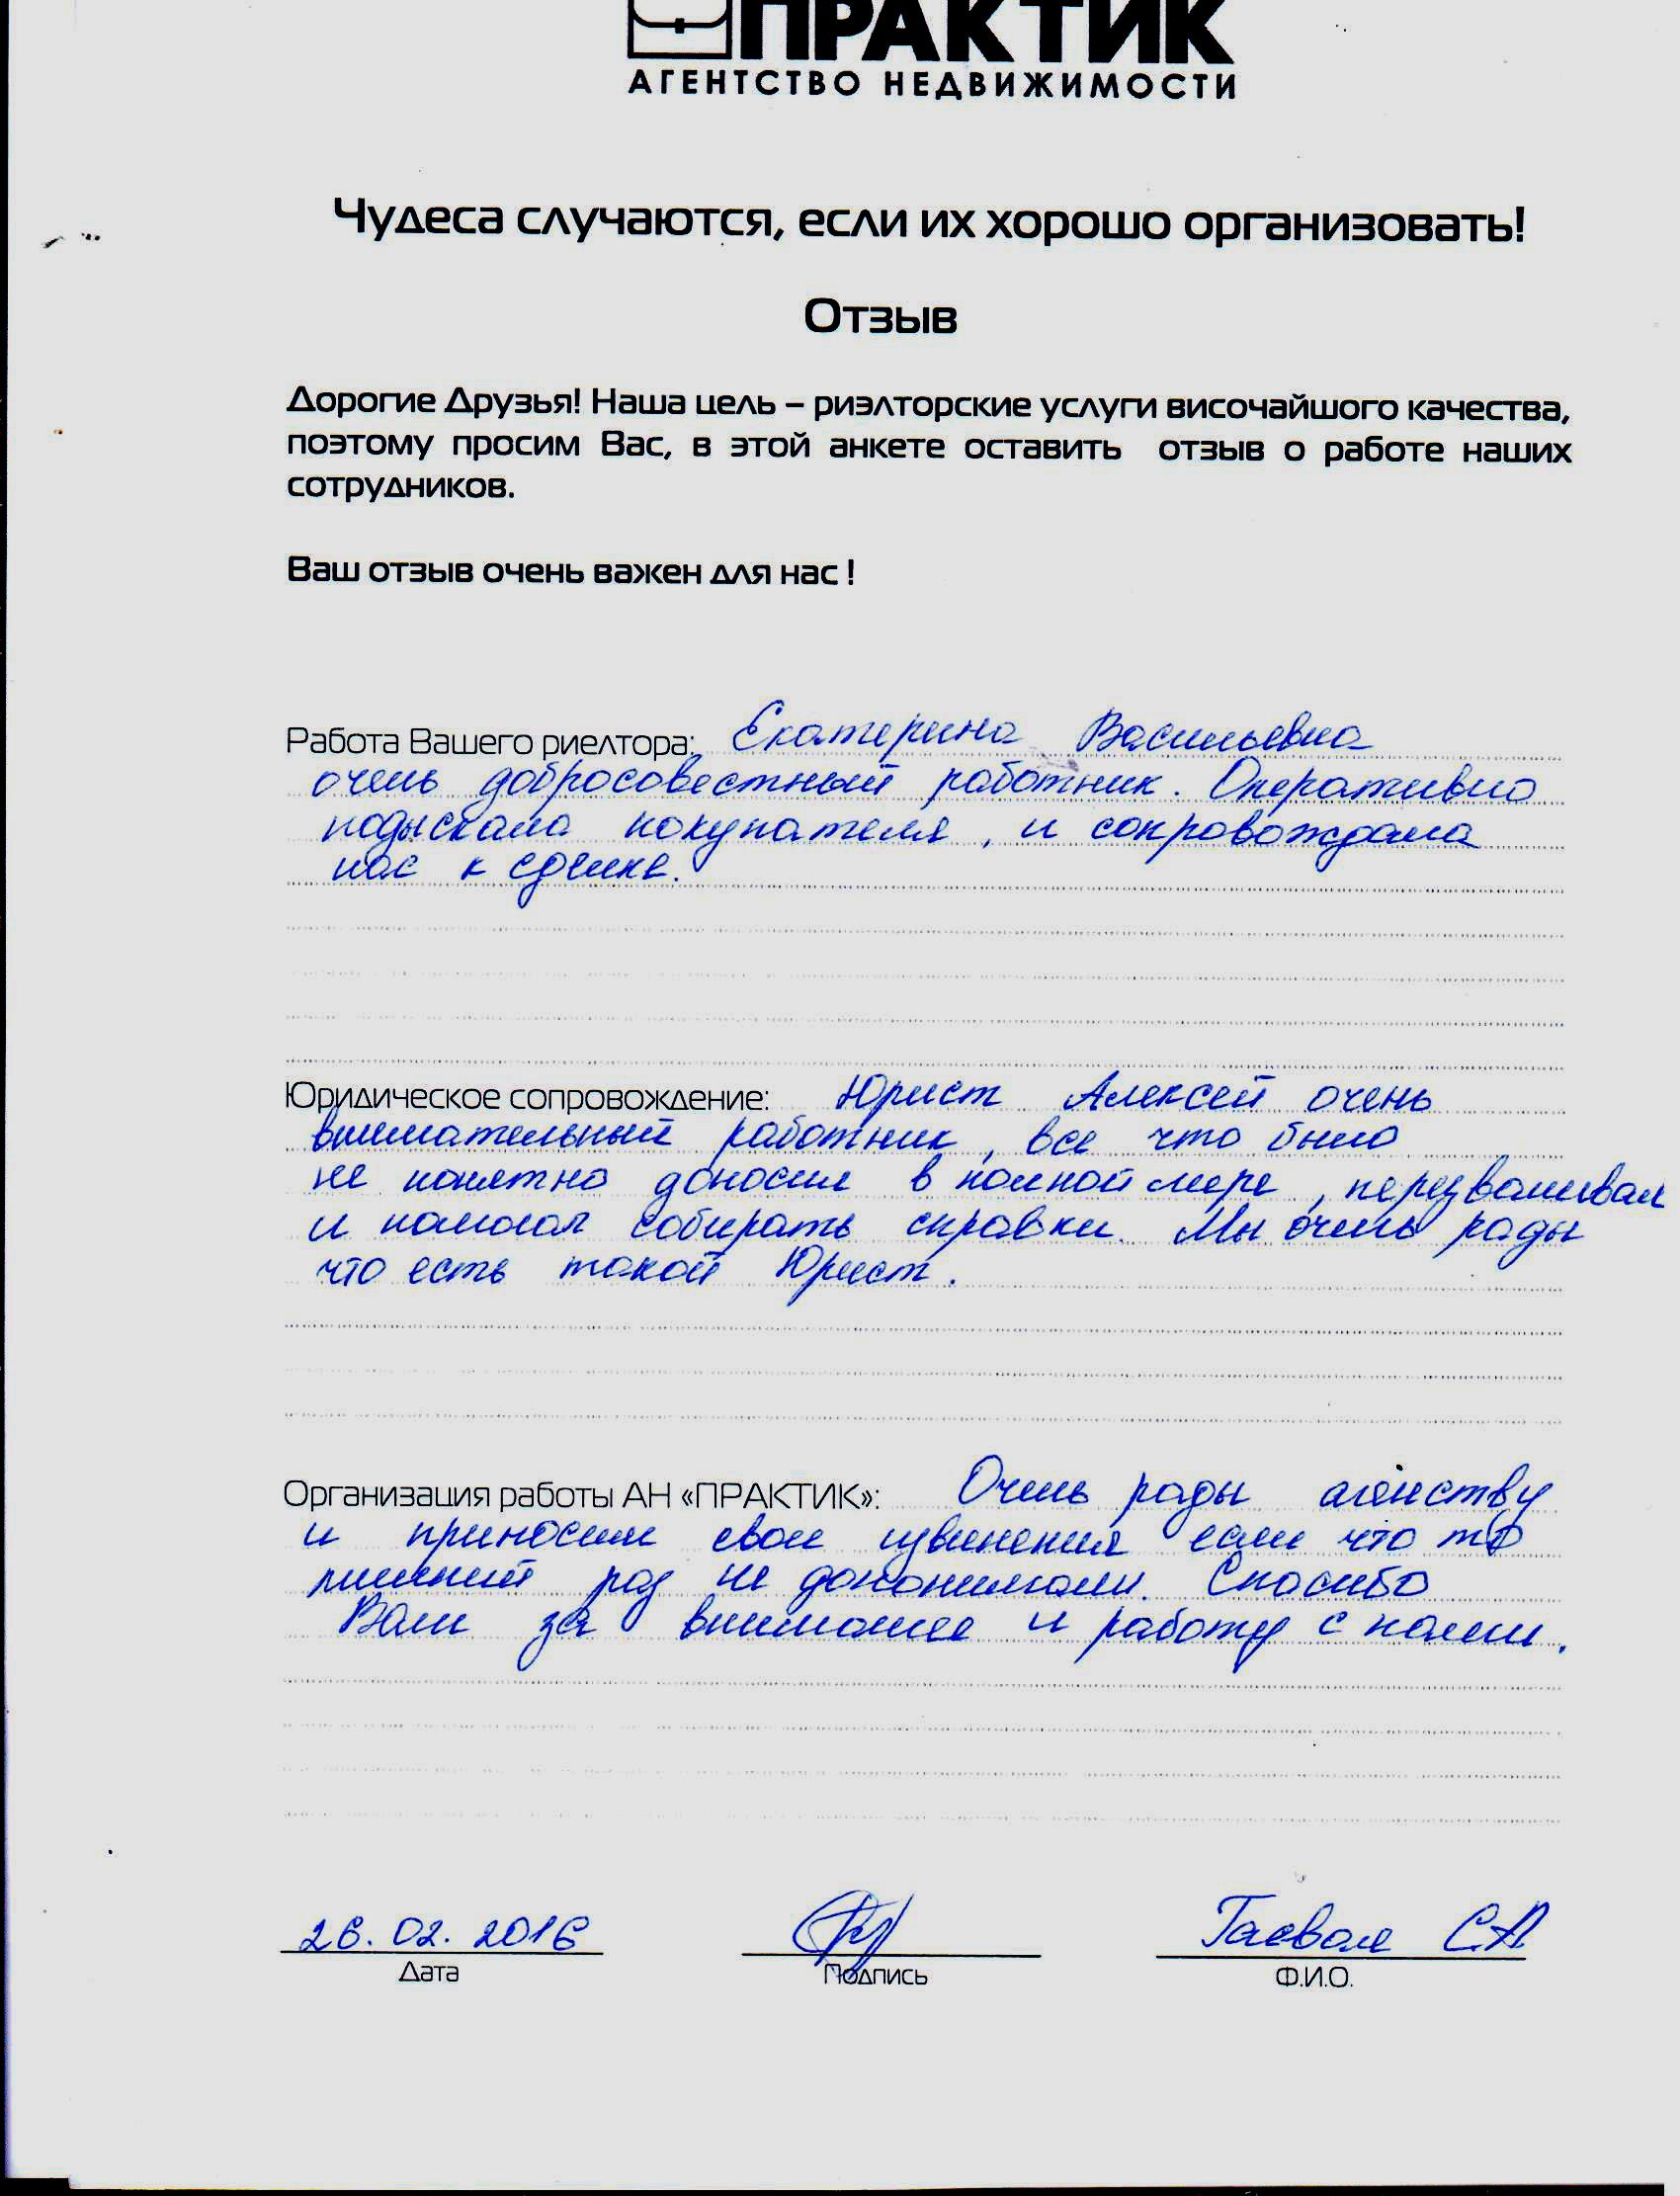 ПРАКТИК
АГЕНТСТВО НЕДВИЖИМОСТИ
Чудеса случаются, если их хорошо организовать!
Отзыв
Дорогие Друзья! Наша цель – риэлторские услуги височайшого качества,
поэтому просим Вас, в этой анкете оставить отзыв о работе наших
сотрудников.
Ваш отзыв очень важен для нас !
Работа Вашего риелтора: Екатерина Васильевна
очень добросовестный работник. Оперативно
подыскала покупателя, и сопровождала
нас к сделке.
Юридическое сопровождение: Юрист Алексей очень
внимательный работник, все что было
не понятно доносил в полной мере, перезванивал
и помогал собирать справки. Мы очень рады
что есть такой Юрист.
Организация работы АН «ПРАКТИК»: Очень рады агенству
и приносим свои извинения если что то
лишний раз не допонимали. Спасибо
Вам за внимание и работу с нами.
26.02.2016
Дата
Подпись
С.А
Ф.И.О.